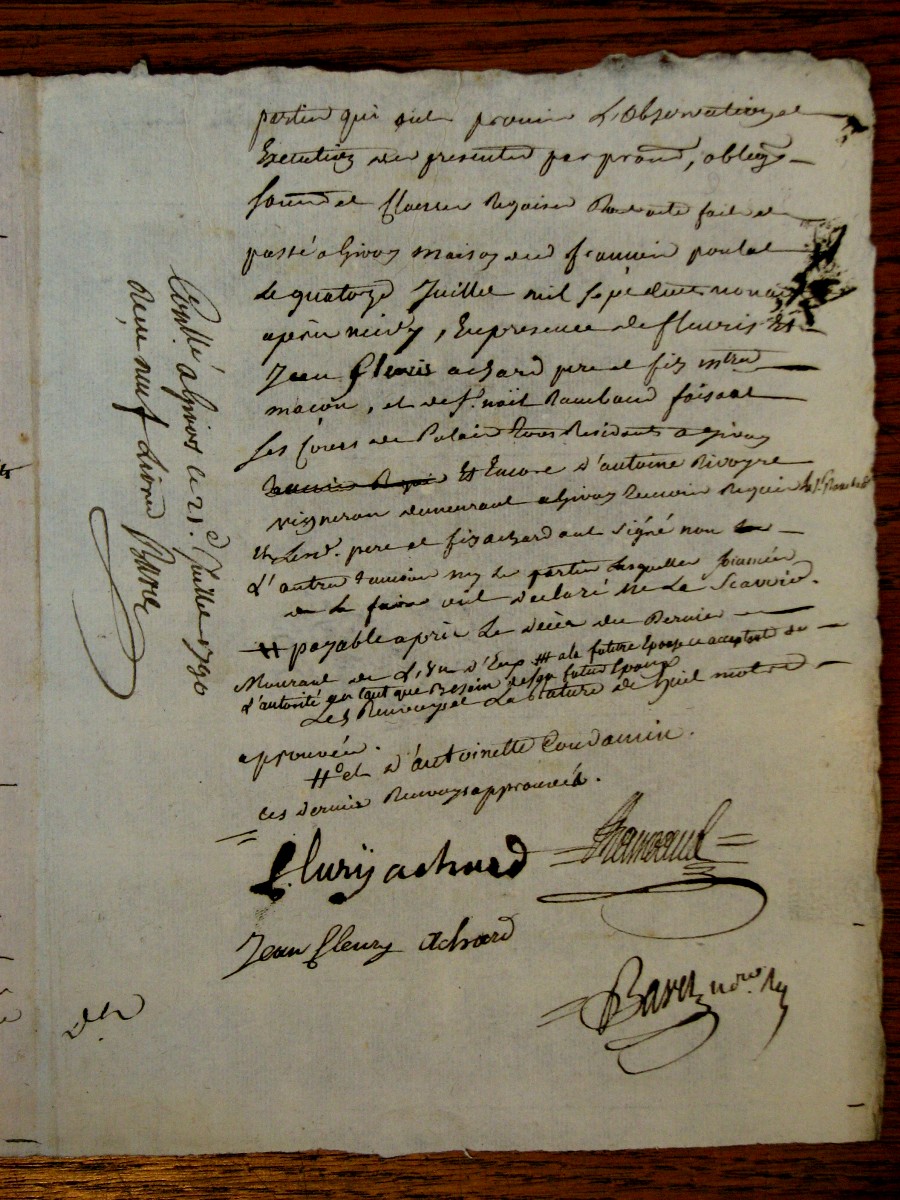 parties qui ont promis L'observation et
Execution des presentes par promes, obligⁿ
soumes et Clauses Requises Dont acte fait et
passé a Givors maison du d françois poulat
Le quatorze Juillet mil sept cent nonante
après midy, En presence de fleuris et
Jean fleuris achard pere et fils mtres
maçon, et de sr. noël Rambaud faisant
Les Cours de Palais tous Residents a Givors
Et Encore d'antoine Rivoyre
vigneron demeurant a Givors temoin Requis Le sr. Rambaud
et Lesd. pere et fils achard ont signé non
L'autre temoin ny les parties Lesquelles
de le faire ont declaré ne La Scavoir.
# payable après Le decès du Dernier
Mourant de L'un d'Eux ## a la future Epouse ce acceptant de
L'autorité en tant que Besoin de son futur Epoux
Les Renvoyes et La rature de huit mots
approuvée.
#° et d'antoinette Condamin.
ces derniers Renvoys approuvés.
fluris achard
Rambaud
Jean fleury achard
Baret nore. Ry
Con.llé a Givors le 21. Juillet 1790
Reçu neuf Livres
Baret